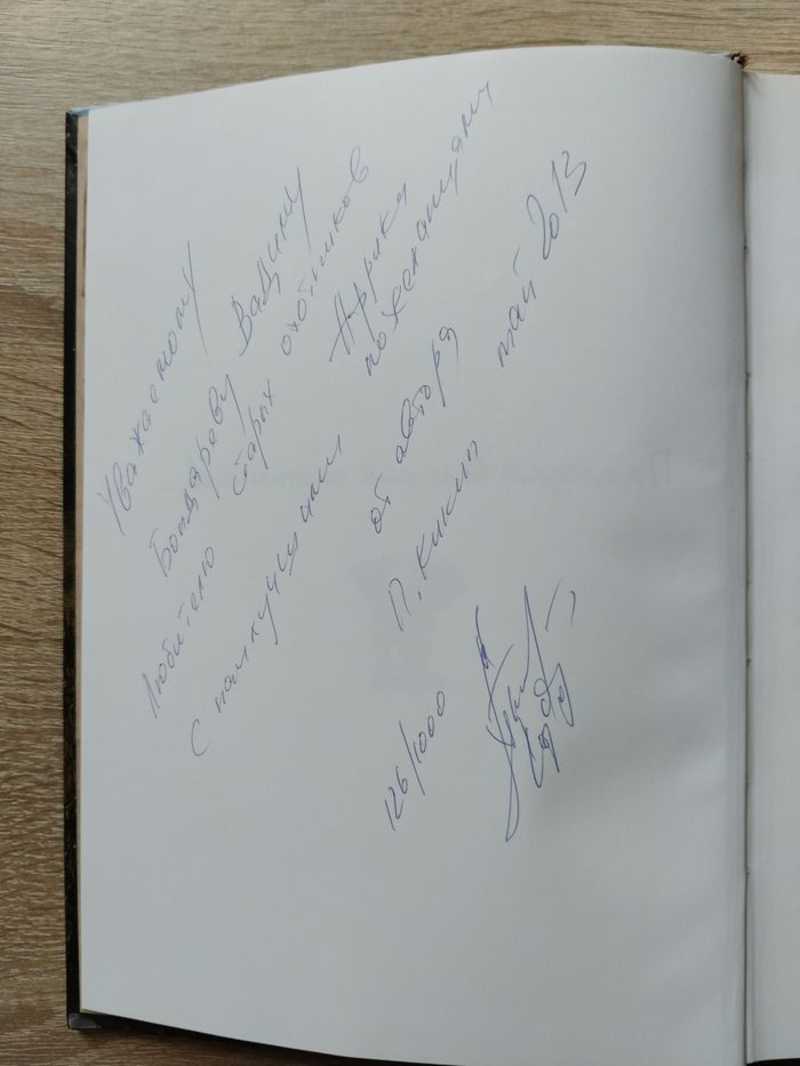 Уважаемому
Бондареву Вадиму
Любителю старых охотников
Африки
С наилучшими пожеланиями
от автора
П. Кикин май 2013
126/1000